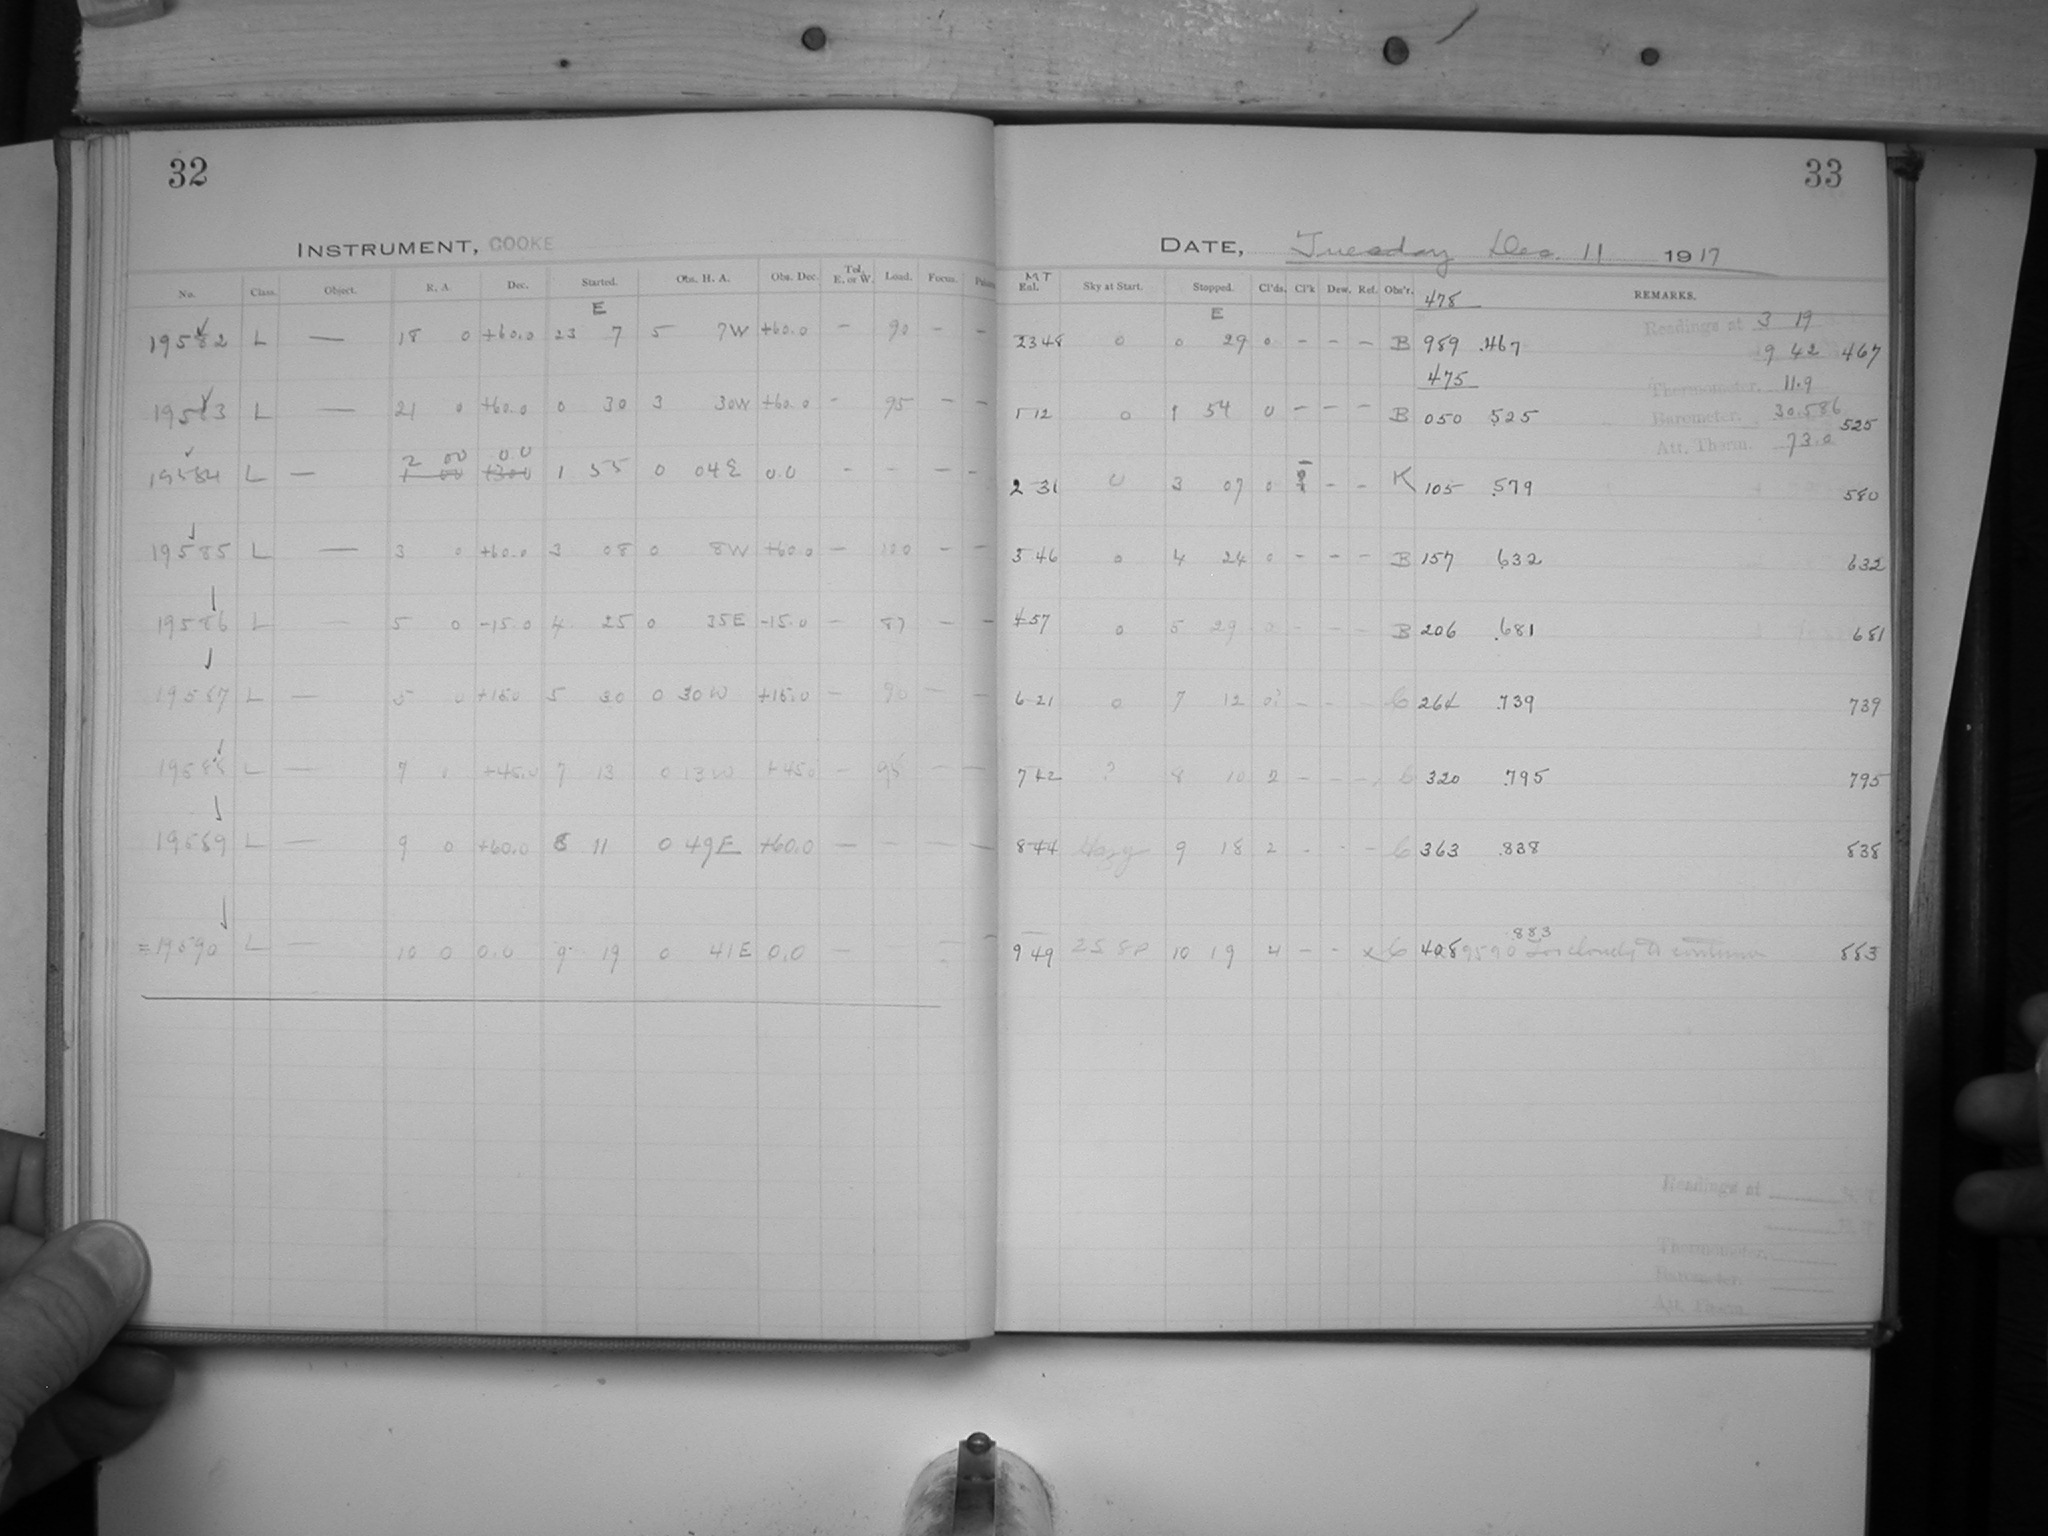 32
INSTRUMENT, COOKE
No. Class. Object. R. A. Dec. Started. Obs. H. A. Obs. Dec. Tel. E. or W. Load. Focus.
E
19582 L — 18 0 +60.0 23 7 5 7W +60.0 - 90 - -
19583 L — 21 0 +60.0 0 30 3 30W +60.0 - 95 - -
2 00 0 0
19584 L — 1 00 +30.0 1 55 0 04E 0.0 - - - -
19585 L — 3 0 +60.0 3 08 0 8W +60.0 - 100 - -
19586 L — 5 0 -15.0 4 25 0 35E -15.0 - 87 - -
19587 L — 5 0 +15.0 5 30 0 30W +15.0 - 90 - -
19588 L — 7 0 +45.0 7 13 0 13W +45.0 - 95 - -
19589 L — 9 0 +60.0 8 11 0 49E +60.0 - - - -
19590 L — 10 0 0.0 9 19 0 41E 0.0 -
33
DATE, Tuesday Dec. 11 1917
MT
Sky at Start. Stopped. Cl'ds. Cl'k Dew. Ref. Obs'r. REMARKS.
E
475
Readings at 3 19
2348 0 0 29 0 - - - B 989 .467
9 42 467
475
Thermometer. 11.9
1 12 0 1 54 0 - - - B 050 .525
Barometer. 30.586
525
Att. Therm. 73.0
2 31 0 3 07 0 - - K 105 .579 580
3 46 0 4 24 0 - - - B 157 .632 632
4 57 0 5 29 0 - - - B 206 .681 681
6 21 0 7 12 0? - - - C 264 .739 739
7 42 ? 8 10 2 - - - C 320 .795 795
8 44 Hazy 9 18 2 - - - C 363 .838 838
.883
9 49 2S 8P 10 19 4 - - x C 408 9590 Too cloudy to continue 883
Readings at
Thermometer.
Barometer.
Att. Therm.